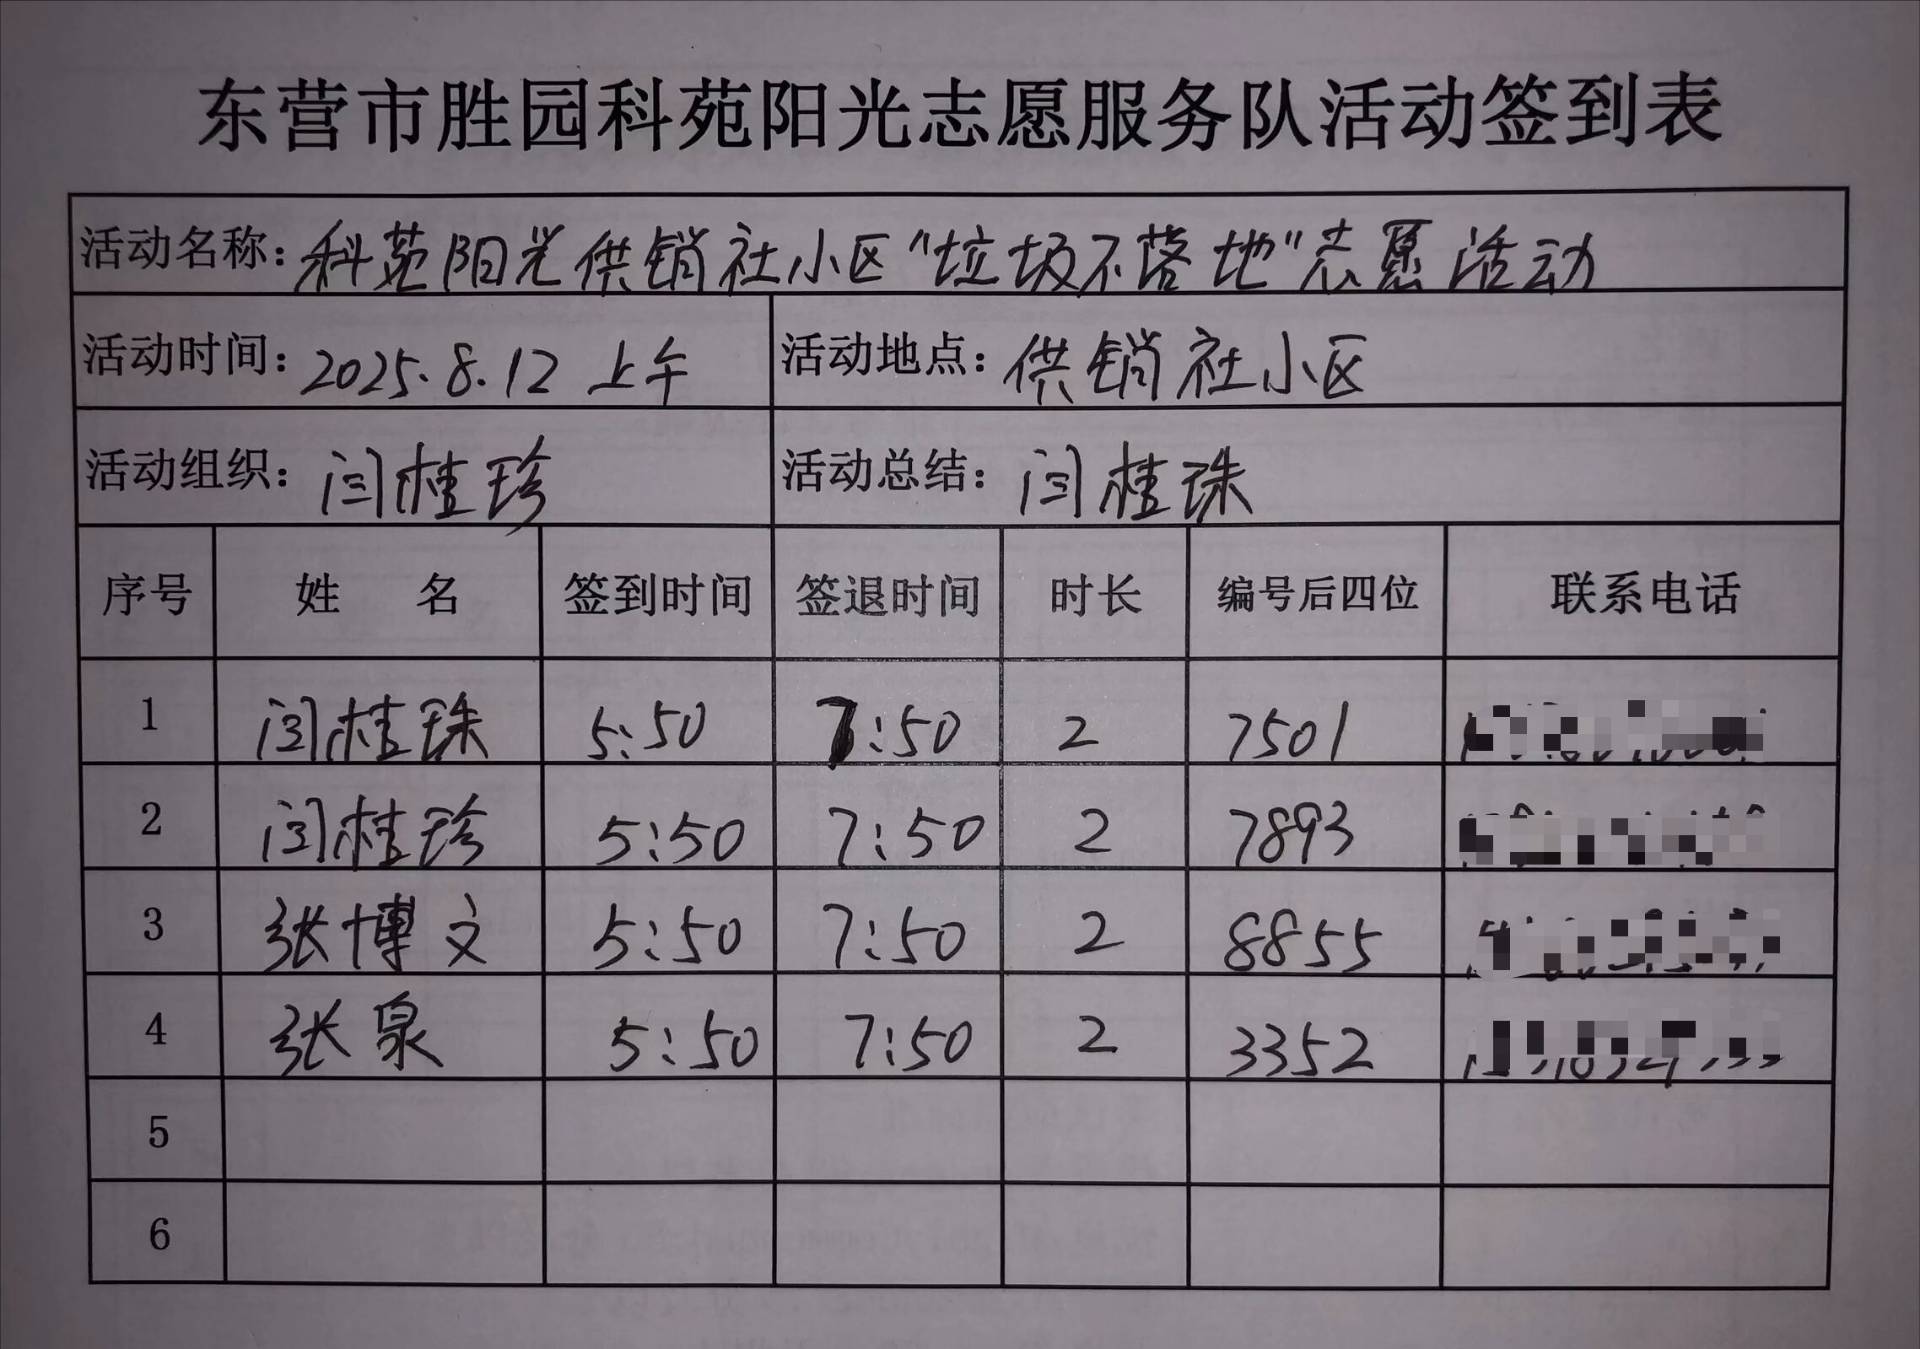 东营市胜园科苑阳光志愿服务队活动签到表
活动名称：科苑阳光供销社小区“垃圾不落地”志愿活动
活动时间：2025.8.12 上午 活动地点：供销社小区
活动组织：闫桂珍 活动总结：闫桂珠
序号 姓 名 签到时间 签退时间 时长 编号后四位 联系电话
1 闫桂珠 5:50 7:50 2 7501
2 闫桂珍 5:50 7:50 2 7893
3 张博文 5:50 7:50 2 8855
4 张泉 5:50 7:50 2 3352
5
6